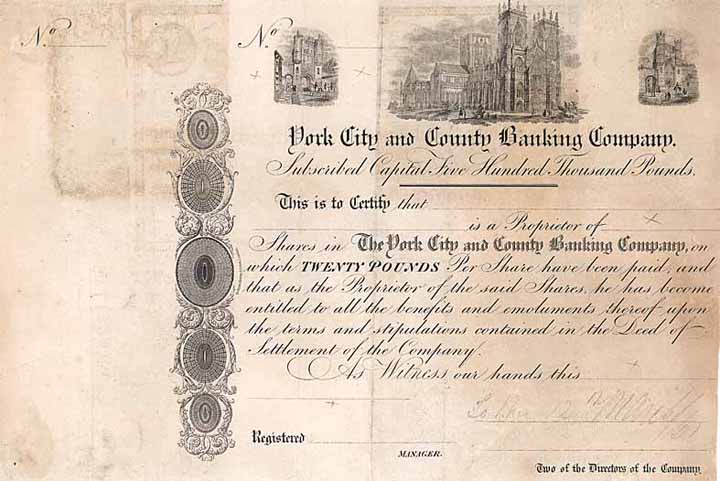 No.
No.
York City and County Banking Company.
Subscribed Capital Five Hundred Thousand Pounds.
This is to Certify that
is a Proprietor of
Shares in The York City and County Banking Company, on
which TWENTY POUNDS Per Share have been paid; and
that as the Proprietor of the said Shares, he has become
entitled to all the benefits and emoluments thereof upon
the terms and stipulations contained in the Deed of
Settlement of the Company.
As Witness our hands this
Registered
MANAGER.
Two of the Directors of the Company.